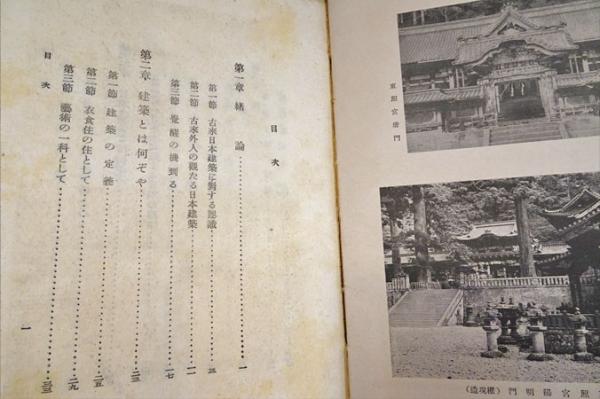 東照宮唐門
東照宮陽明門（權現造）
目次
第一章 緒論…………一
第一節 古來日本建築に對する認識…………三
第二節 古來外人の觀たる日本建築…………一一
第三節 覺醒の機到る…………一七
第二章 建築とは何ぞや…………二三
第一節 建築の定義…………二五
第二節 衣食住の住として…………二九
第三節 藝術の一科として…………三三
目次
一